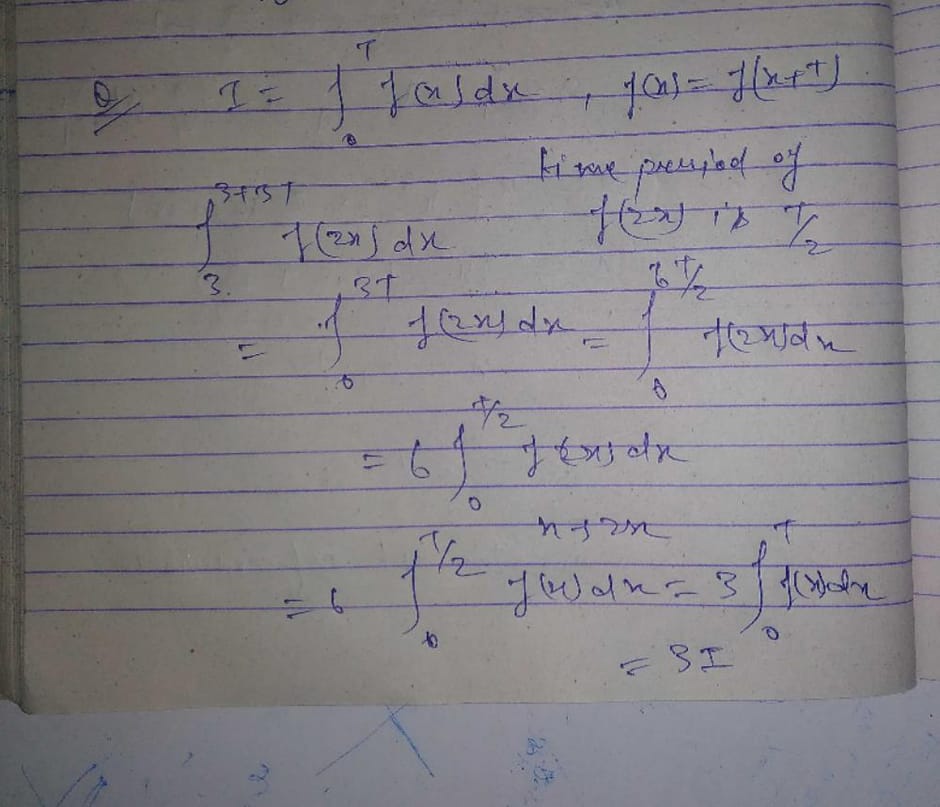 Q I = ∫₀ᵀ f(x) dx , f(x) = f(x+T)
time period of
∫₃³⁺³ᵀ f(2x) dx f(2x) is T/2
= ∫₀³ᵀ f(2x) dx = ∫₀^(6T/2) f(2x) dx
= 6 ∫₀^(T/2) f(2x) dx
x → 2x
= 6 ∫₀^(T/2) f(x) dx = 3 ∫₀ᵀ f(x) dx
= 3I